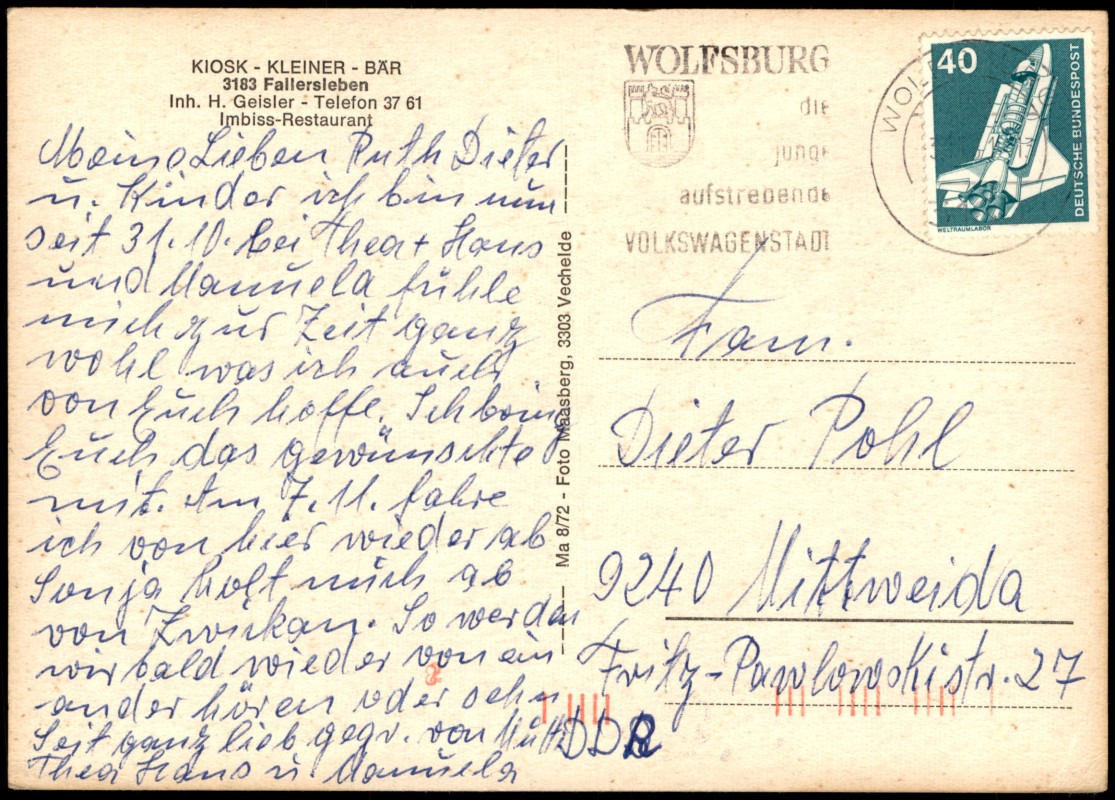 KIOSK - KLEINER - BÄR
3183 Fallersleben
Inh. H. Geisler - Telefon 37 61
Imbiss-Restaurant
Meine Lieben Ruth Dieter
u. Kinder ich bin nun
seit 31.10. bei Thea + Hans
und Manuela fühle
mich zur Zeit ganz
wohl was ich auch
von Euch hoffe. Ich bring
Euch das gewünschte
mit. Am 7.11. fahre
ich von hier wieder ab
Sonja holt mich ab
von Zwickau. So werden
wir bald wieder von ein
ander hören oder sehn
Seit ganz lieb gegr. von Mutti
Thea Hans u. Manuela
Ma 8/72 - Foto Maasberg, 3303 Vechelde
WOLFSBURG
die
junge
aufstrebende
VOLKSWAGENSTADT
WOL
40
DEUTSCHE BUNDESPOST
WELTRAUMLABOR
Fam.
Dieter Pohl
9240 Mittweida
Fritz-Pawlowskistr. 27
DDR